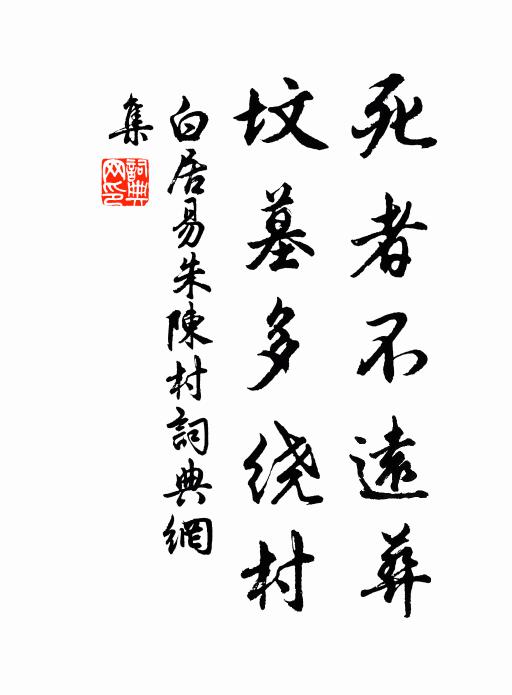 死者不遠葬
坟墓多绕村
白居易朱陳村詞典網
集
詞典网印